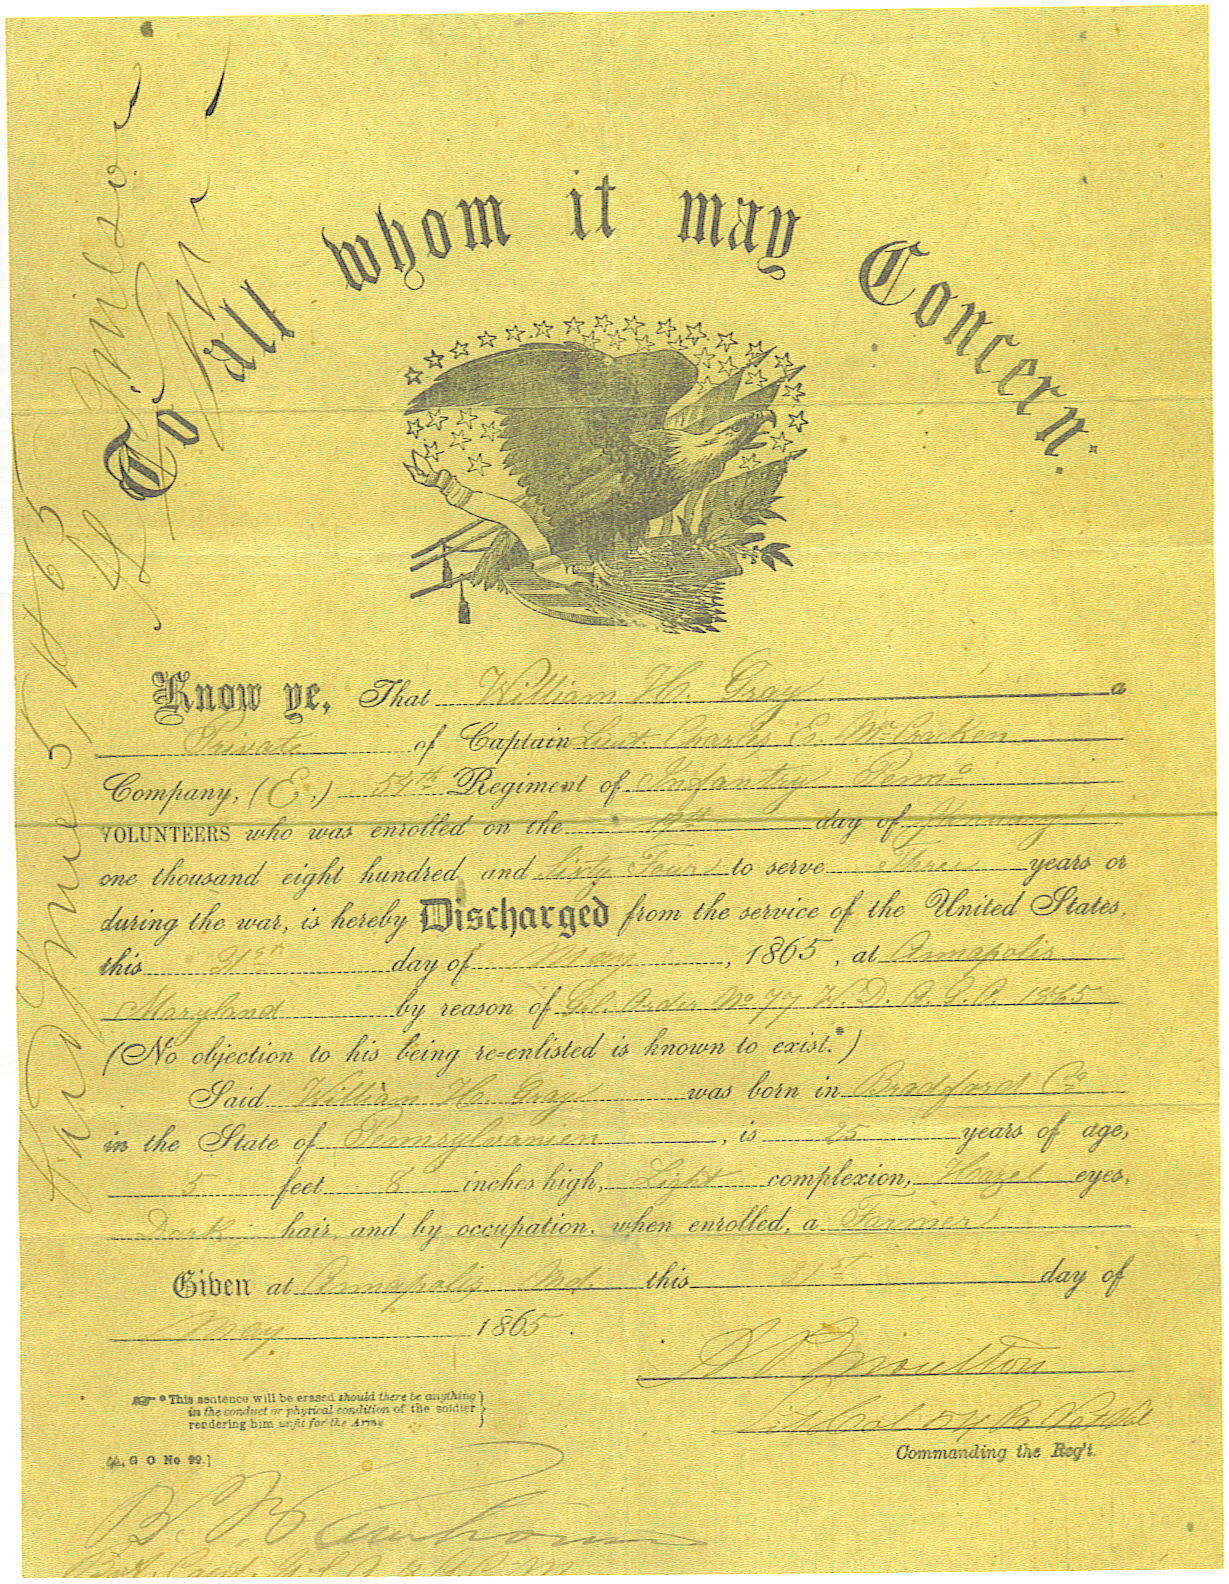 To all whom it may Concern.
Know ye, That William H. Gray a
Private of Captain Lieut. Charles E. McCracken
Company, (E.) 54th Regiment of Infantry Penna
VOLUNTEERS who was enrolled on the 19th day of January
one thousand eight hundred and Sixty Four to serve Three years or
during the war, is hereby Discharged from the service of the United States,
this 31st day of May, 1865, at Annapolis
Maryland by reason of Gel. Order No 77 W. D. A. G. O. 1865
(No objection to his being re-enlisted is known to exist.*)
Said William H. Gray was born in Bradford Co
in the State of Pennsylvanien, is 25 years of age,
5 feet 8 inches high, Light complexion, Hazel eyes,
Dark hair, and by occupation, when enrolled, a Farmer
Given at Annapolis Md. this 31st day of
May 1865.
A P Moulton
Lt Col 54 Pa Vet Vol
Commanding the Reg't.
*This sentence will be erased should there be anything
in the conduct or physical condition of the soldier
rendering him unfit for the Army
[A. G. O. No 99.]
June 5, 1865